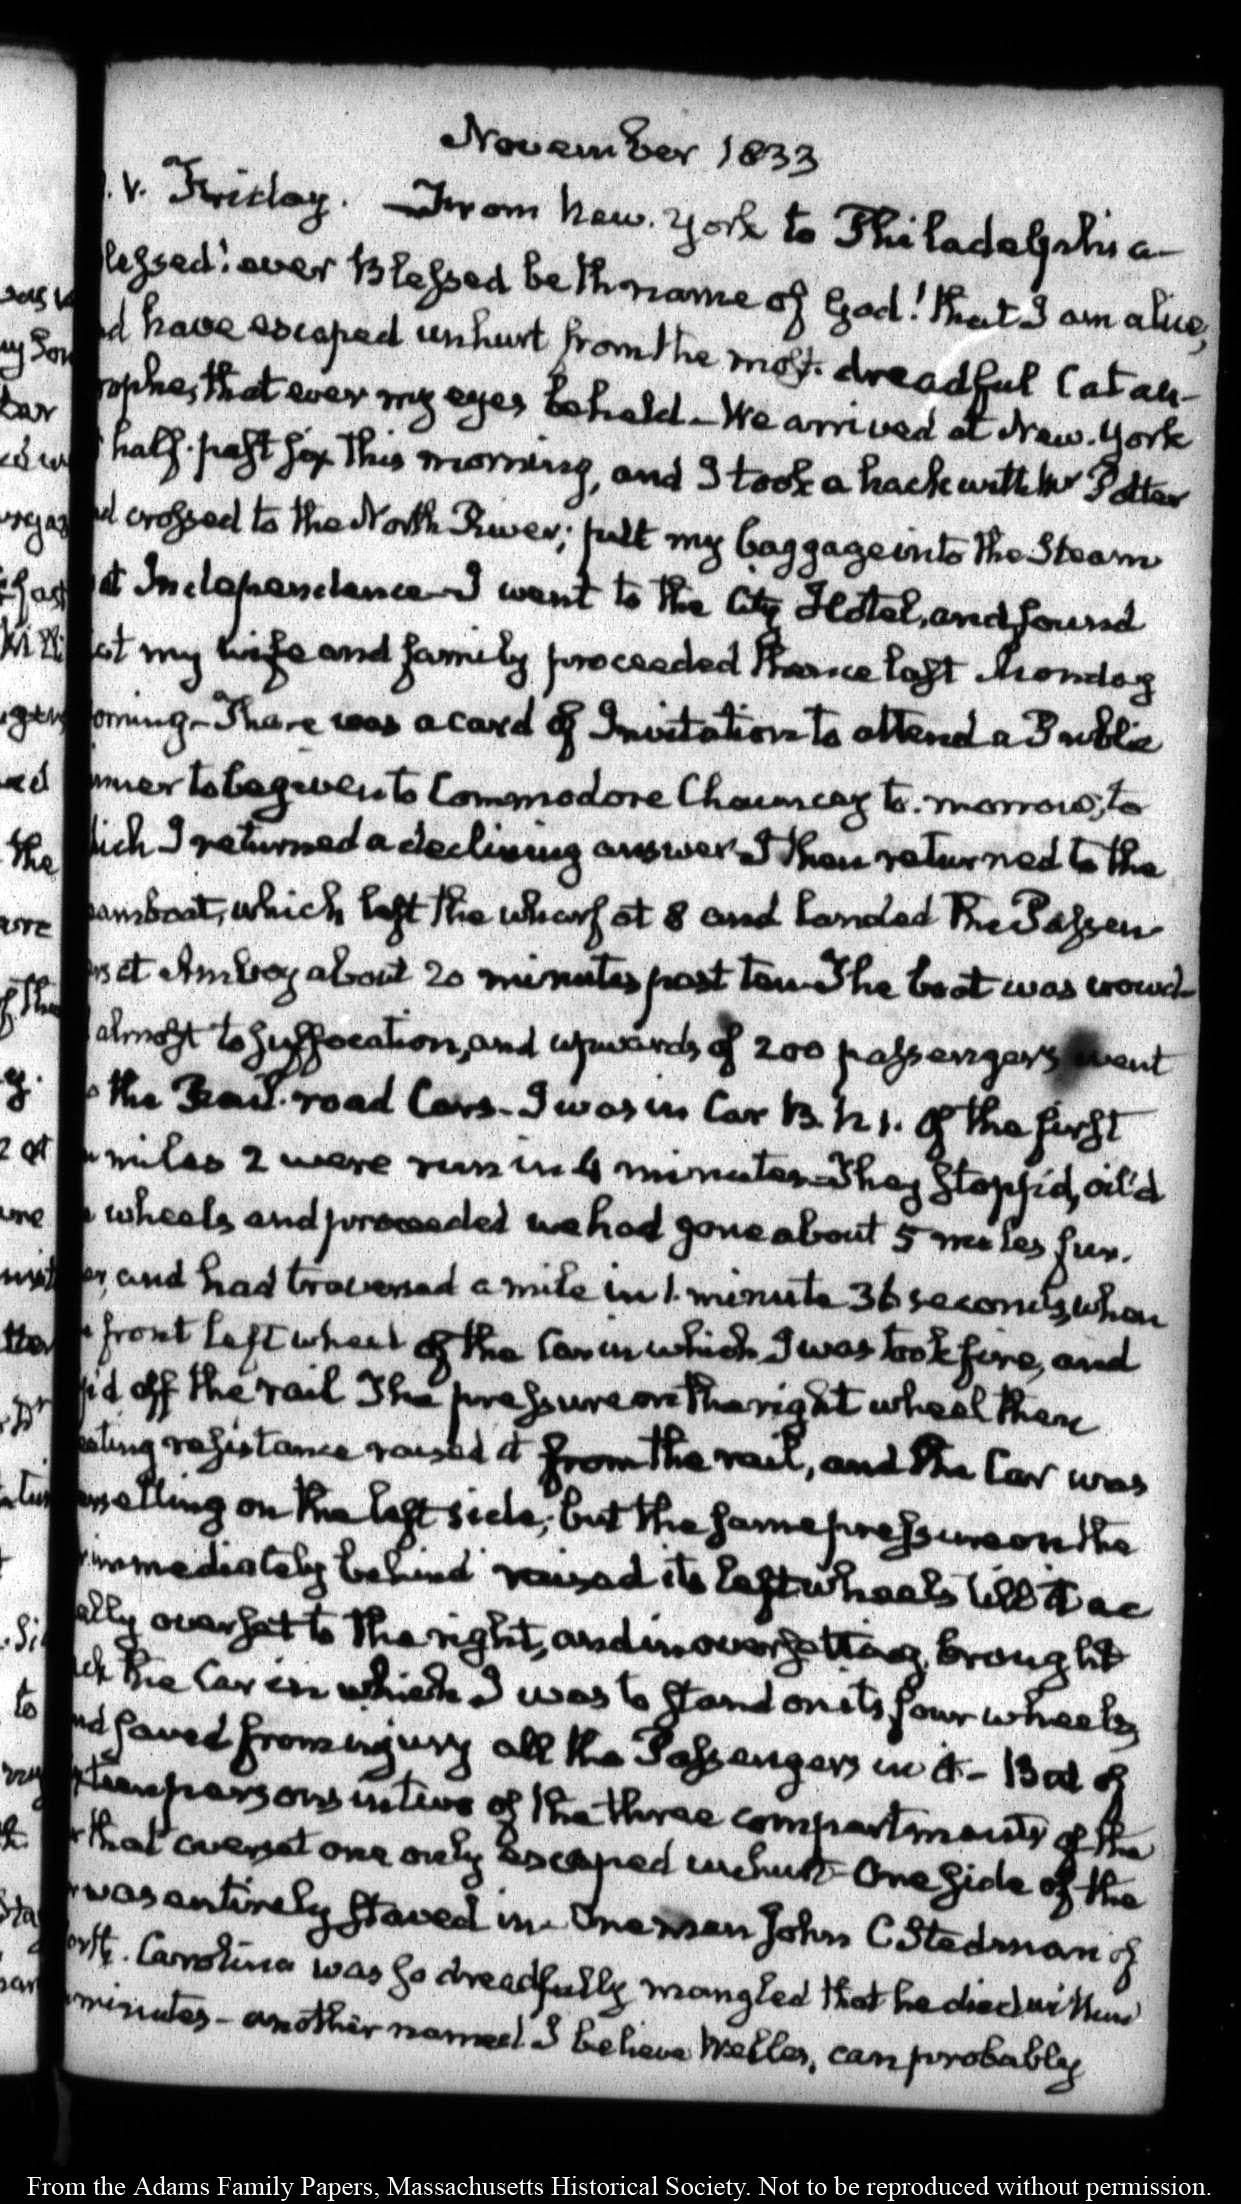 November 1833
. V. Friday. — From New-York to Philadelphia —
lessed! ever Blessed be th name of God! that I am alive,
d have escaped unhurt from the most dreadful Catas-
ophe, that ever my eyes beheld — We arrived at New-York
half-past six this morning, and I took a hack with Mr Potter
d crossed to the North River; putt my baggage into the Steam
at Independence — I went to the City Hotel, and found
at my wife and family proceeded thence last Monday
orning — There was a card of Invitation to attend a Public
inner to be given to Commodore Chauncey to-morrow; to
hich I returned a declining answer — I then returned to the
eamboat, which left the wharf at 8 and landed the Passen-
rs at Amboy about 20 minutes past ten — The boat was crowd-
almost to suffocation, and upwards of 200 passengers went
o the Rail-road Cars — I was in Car B. N 1. Of the first
n miles 2 were run in 4 minutes — They stopp'd, oil'd
e wheels and proceeded we had gone about 5 miles fur-
er, and had traversed a mile in 1. minute 36 seconds, when
e front left wheel of the Car in which I was took fire, and
p'd off the rail The pressure on the right wheel then
eeting resistance raised it from the rail, and the Car was
ersetting on the left side; but the same pressure on the
r immediately behind raised its left wheels till it ac
ally overset to the right, and in oversetting, brought
ck the Car in which I was to stand on its four wheels,
nd saved from injury all the Passengers in it — But of
xteen persons in two of the three compartments of the
r that overset one only escaped unhurt — One side of the
r was entirely staved in — One man John C Stedman of
orth-Carolina was so dreadfully mangled that he died within
minutes — another named I believe Welles, can probably
was
my Son
the
to
From the Adams Family Papers, Massachusetts Historical Society. Not to be reproduced without permission.